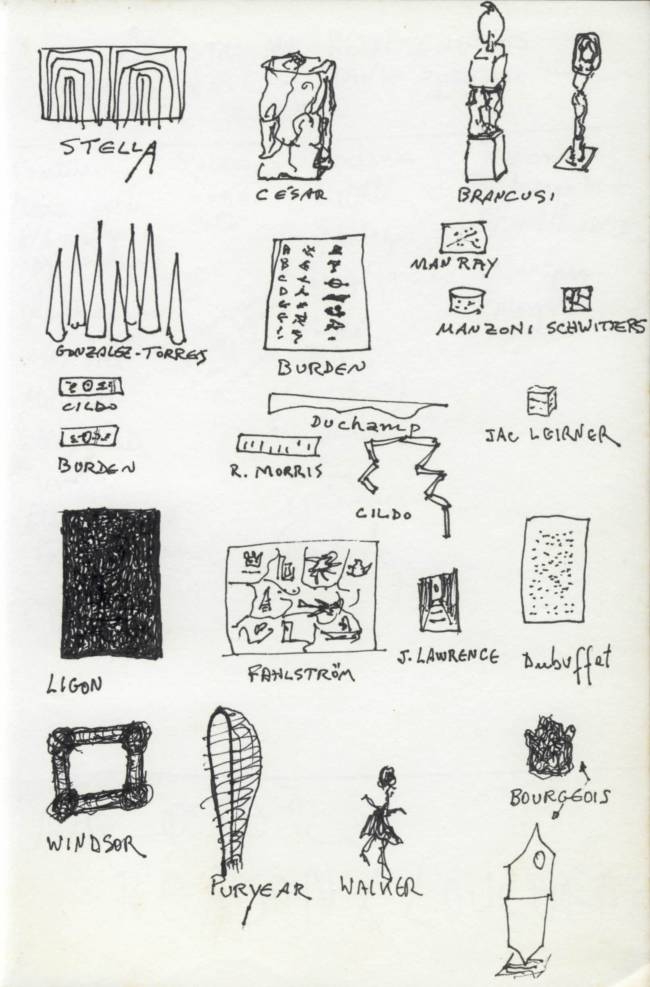 STELLA
CÉSAR
BRANCUSI
MAN RAY
GONZALEZ-TORRES
BURDEN
MANZONI
SCHWITTERS
CILDO
BURDEN
DUchAMP
R. MORRIS
CILDO
JAC LEIRNER
LIGON
FAHLSTRÖM
J. LAWRENCE
Dubuffet
WINDSOR
PURYEAR
WALKER
BOURGEOIS